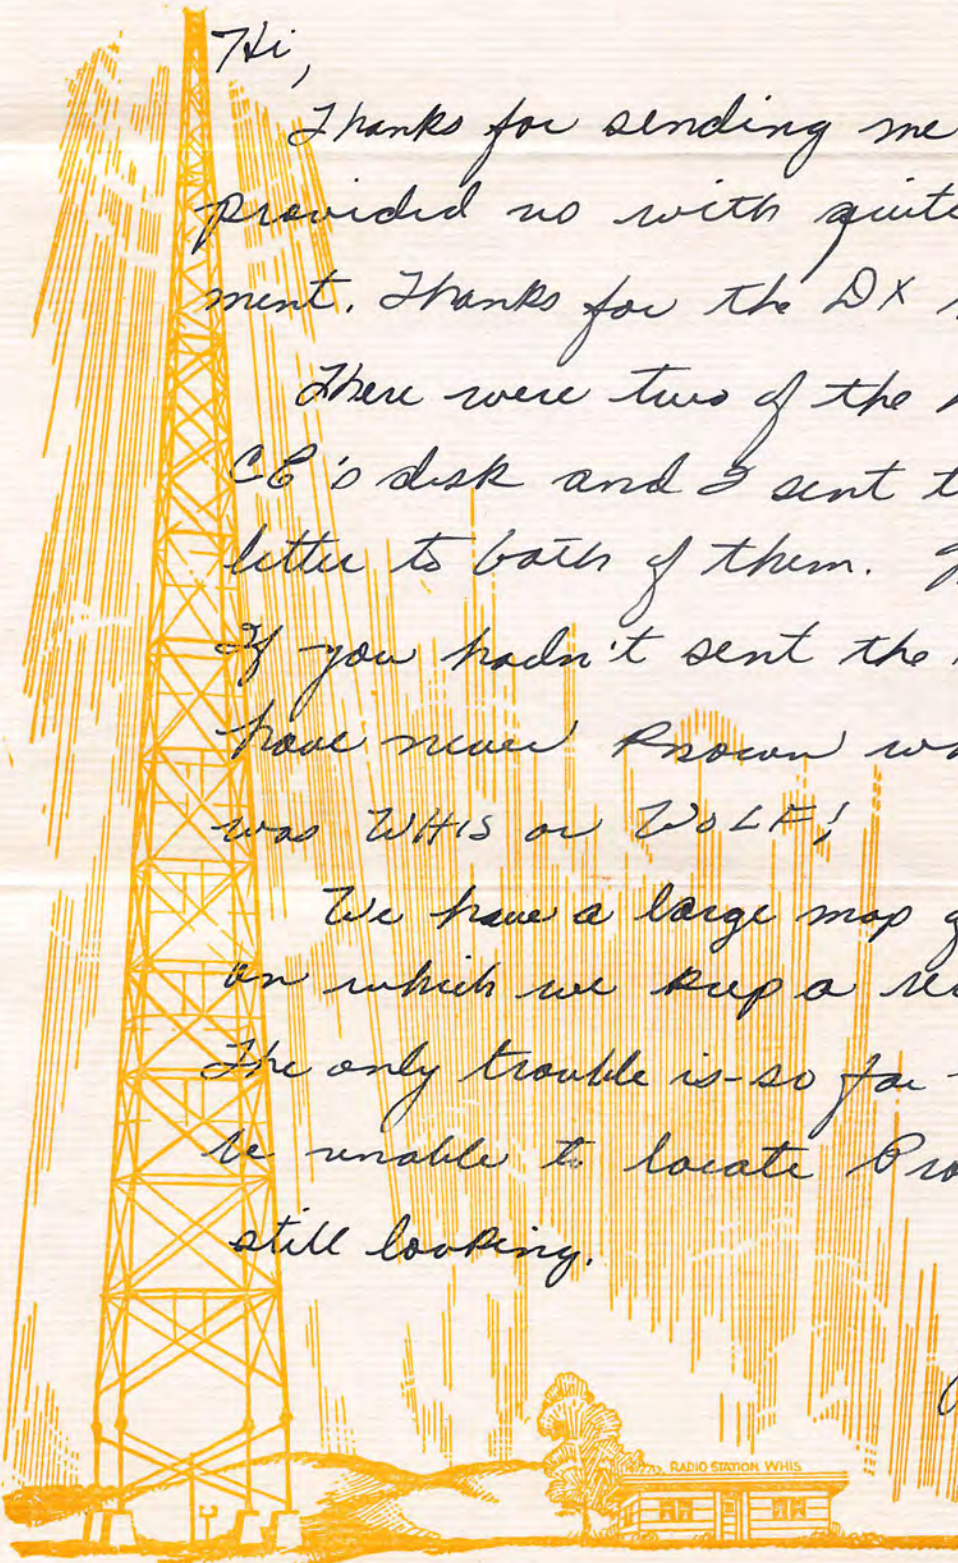 Hi,
Thanks for sending me
provided us with quite
ment. Thanks for the DX
There were two of the
CE's disk and I sent
letter to both of them.
If you hadn't sent the
have never known
was WHIS or WOLF!
We have a large map
on which we keep a
The only trouble is - so far
be unable to locate
still looking.
RADIO STATION WHIS